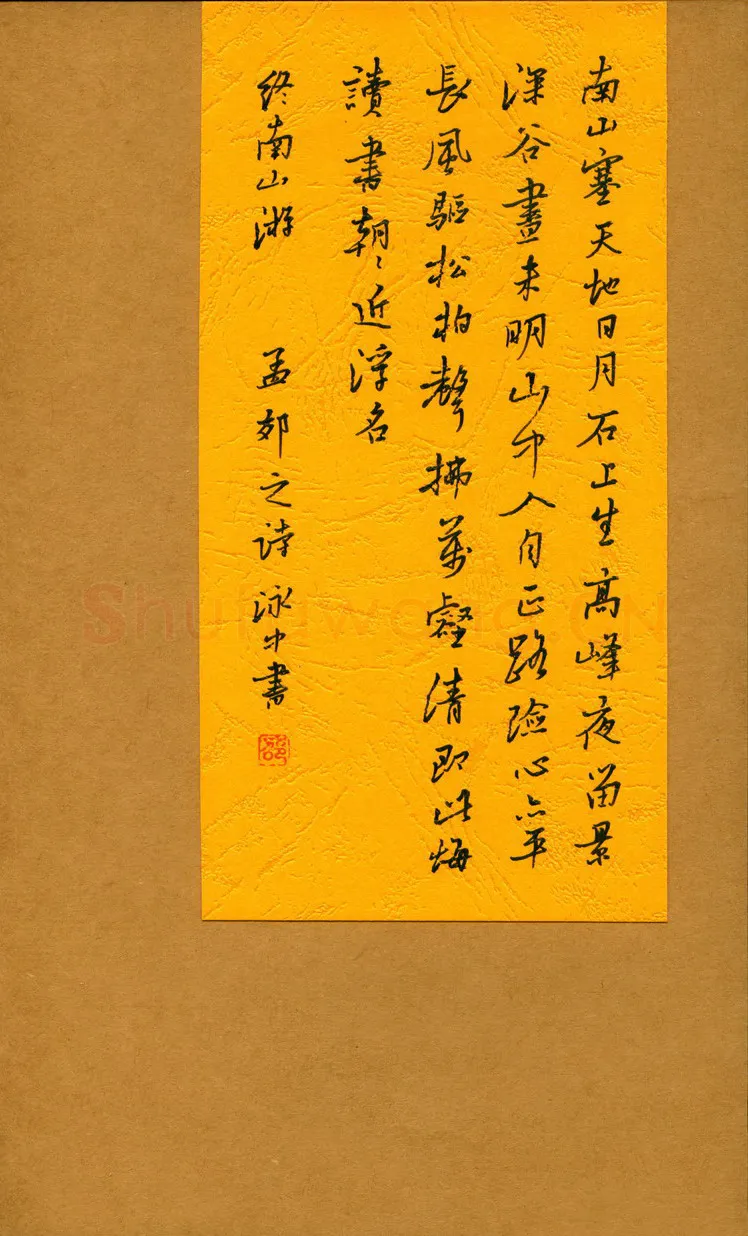 南山塞天地日月石上生高峰夜留景
深谷晝未明山中人自正路險心亦平
長風驅松柏聲拂萬壑清即此悔
讀書朝〻近浮名
終南山游 孟郊之詩 泳中書
Shufawang.CN